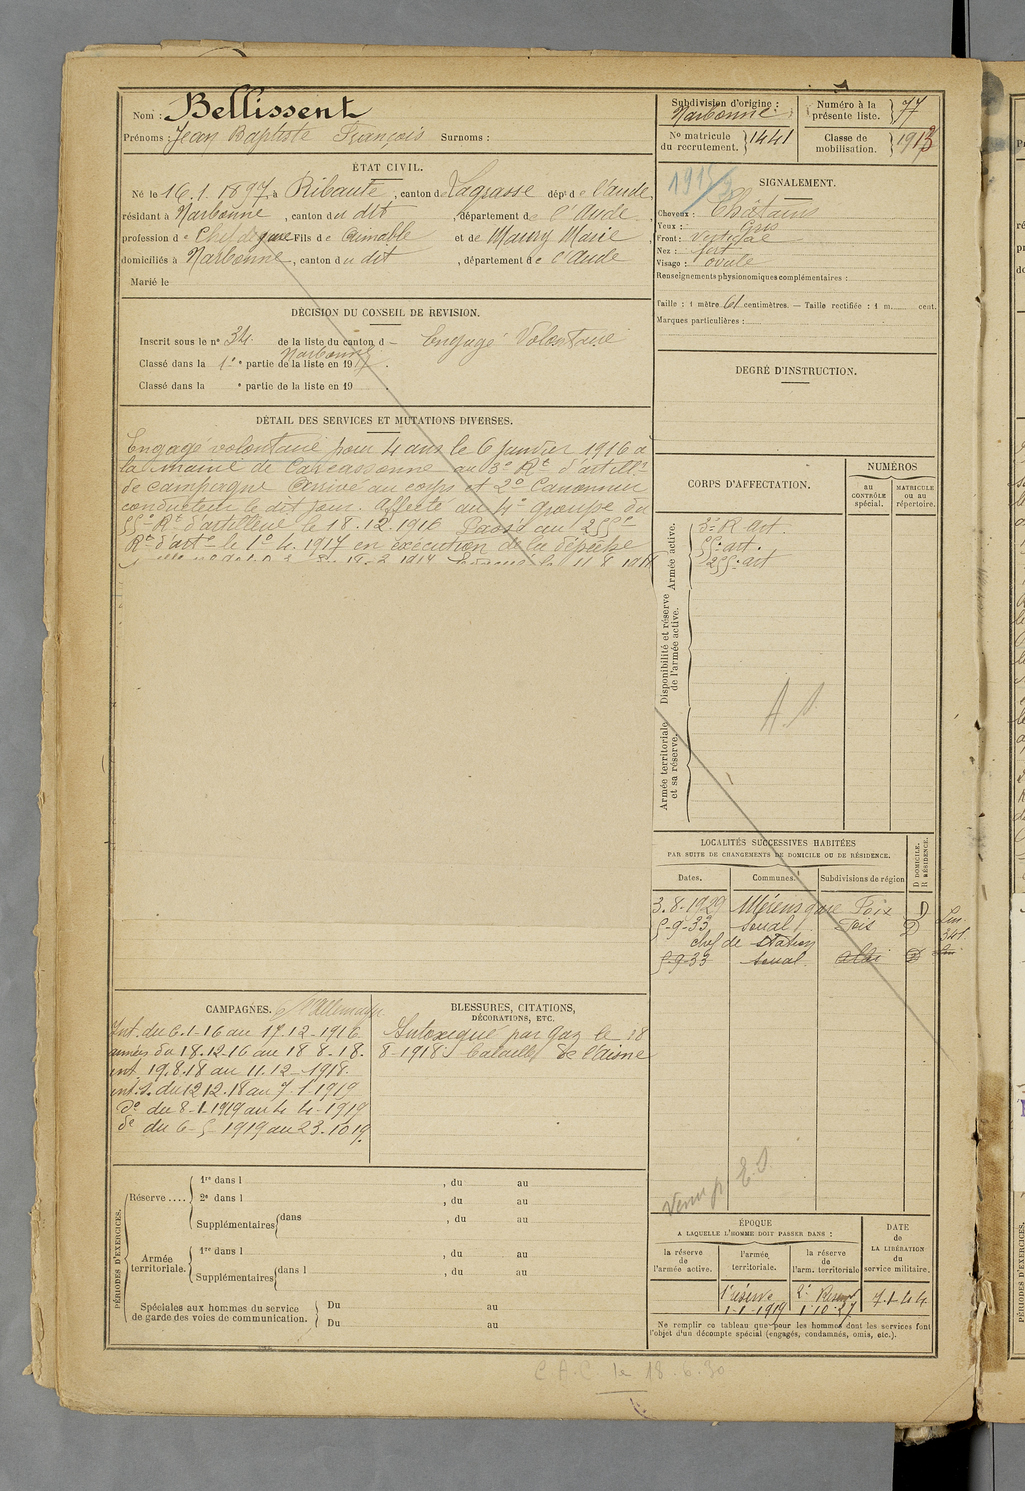 Nom : Bellissent
Prénoms : Jean Baptiste François Surnoms :
ÉTAT CIVIL.
Né le 16.1.1897, à Ribaute, canton de Lagrasse dépt de l'aude,
résidant à Narbonne, canton du dit, département de l'Aude,
profession de Chef de gare Fils de Aimable et de Maury Marie,
domiciliés à Narbonne, canton du dit, département de l'aude
Marié le
DÉCISION DU CONSEIL DE REVISION.
Inscrit sous le n° 34. de la liste du canton d Engagé Volontaire
Narbonne
Classé dans la 1e partie de la liste en 1917.
Classé dans la e partie de la liste en 19
DÉTAIL DES SERVICES ET MUTATIONS DIVERSES.
Engagé volontaire pour 4 ans le 6 janvier 1916 à
la mairie de Carcassonne au 3e Rt d'artillie
de campagne Arrivé au corps et 2e Canonnier
conducteur le dit jour. Affecté au 4e groupe du
55e Rt d'artillerie le 18.12.1916 Passé au 255e
Rt d'arte le 1e 4.1917 en exécution de la dépêche
Subdivision d'origine :
Narbonne
Numéro à la
présente liste. 77
No matricule
du recrutement. 1441
Classe de
mobilisation. 1913
1915/3
SIGNALEMENT.
Cheveux : Châtains
Yeux : Gris
Front : Vertical
Nez : fort
Visage : ovale
Renseignements physionomiques complémentaires :
Taille : 1 mètre 61 centimètres. — Taille rectifiée : 1 m. cent.
Marques particulières :
DEGRÉ D'INSTRUCTION.
CORPS D'AFFECTATION.
NUMÉROS
au
CONTRÔLE
spécial.
MATRICULE
ou au
répertoire.
Armée active.
3e R art.
55e art.
255e art
Disponibilité et réserve
de l'armée active.
Armée territoriale
et sa réserve.
LOCALITÉS SUCCESSIVES HABITÉES
PAR SUITE DE CHANGEMENTS DE DOMICILE OU DE RÉSIDENCE.
Dates.
Communes.
Subdivisions de région
D DOMICILE.
R RÉSIDENCE.
3.8.1929 Mérens gare Foix D
5-9-33 Soual Foix D
chef de station
5-9-33 Soual D
341
CAMPAGNES. c/ l'Allemagne
Int. du 6.1-16 au 17.12-1916
armées du 18.12-16 au 18.8.18.
int 19.8.18 au 11.12-1918.
int. S. du 12 12.18 au 7-1-1919
do du 8-1-1919 au 4 4-1919
do du 6-5-1919 au 23.10 19.
BLESSURES, CITATIONS,
DÉCORATIONS, ETC.
Intoxiqué par gaz le 18
8-1918 Bataille de l'Aisne
PÉRIODES D'EXERCICES.
Réserve....
1re dans l , du au
2e dans l , du au
Supplémentaires dans , du au
Armée
territoriale.
1re dans l , du au
Supplémentaires dans l , du au
Spéciales aux hommes du service
de garde des voies de communication.
Du au
Du au
ÉPOQUE
A LAQUELLE L'HOMME DOIT PASSER DANS :
la réserve
de
l'armée active.
l'armée
territoriale.
la réserve
de
l'arm. territoriale
DATE
de
LA LIBÉRATION
du
service militaire.
1e réserve
1-1-1919
2e Réserve
1.10.27
7-1-44.
Ne remplir ce tableau que pour les hommes dont les services font
l'objet d'un décompte spécial (engagés, condamnés, omis, etc.).
C.A.C. le 18.6.30